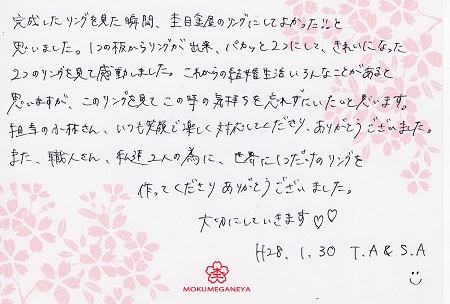 完成したリングを見た瞬間、杢目金屋のリングにしてよかった!!と
思いました。1つの板からリングが出来、パカッと2つにして、きれいになった
2つのリングを見て感動しました。これからの結婚生活いろんなことがあると
思いますが、このリングを見てこの時の気持ちを忘れずにいたいと思います。
担当の小林さん、いつも笑顔で楽しく対応してくださり、ありがとうございました。
また、職人さん、私達2人の為に、世界に1つだけのリングを
作ってくださりありがとうございました。
大切にしていきます♡♡
H28.1.30 T.A & S.A
MOKUMEGANEYA